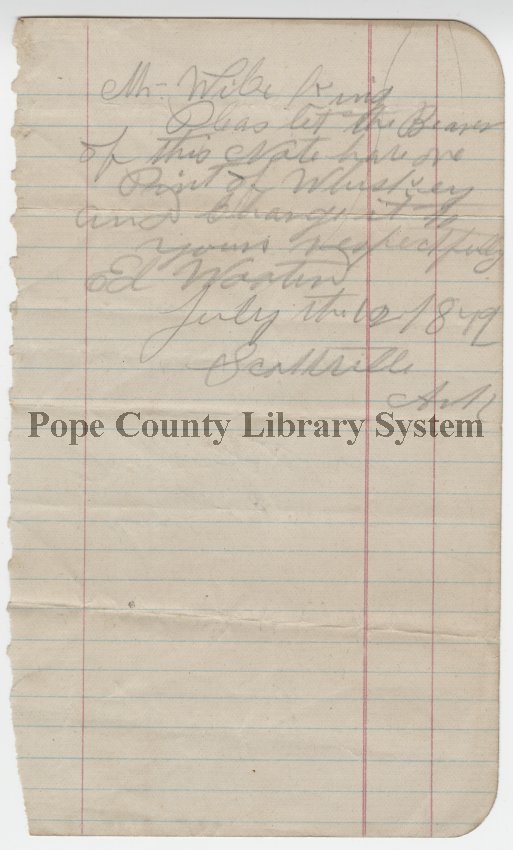 Mr Wilse King
Pleas let the Bearer
of this Note have one
Pint of Whiskey
and Charge it to
yours respectfully
Ed Wooten
July the 12 1879
Scottsville
Ark
Pope County Library System